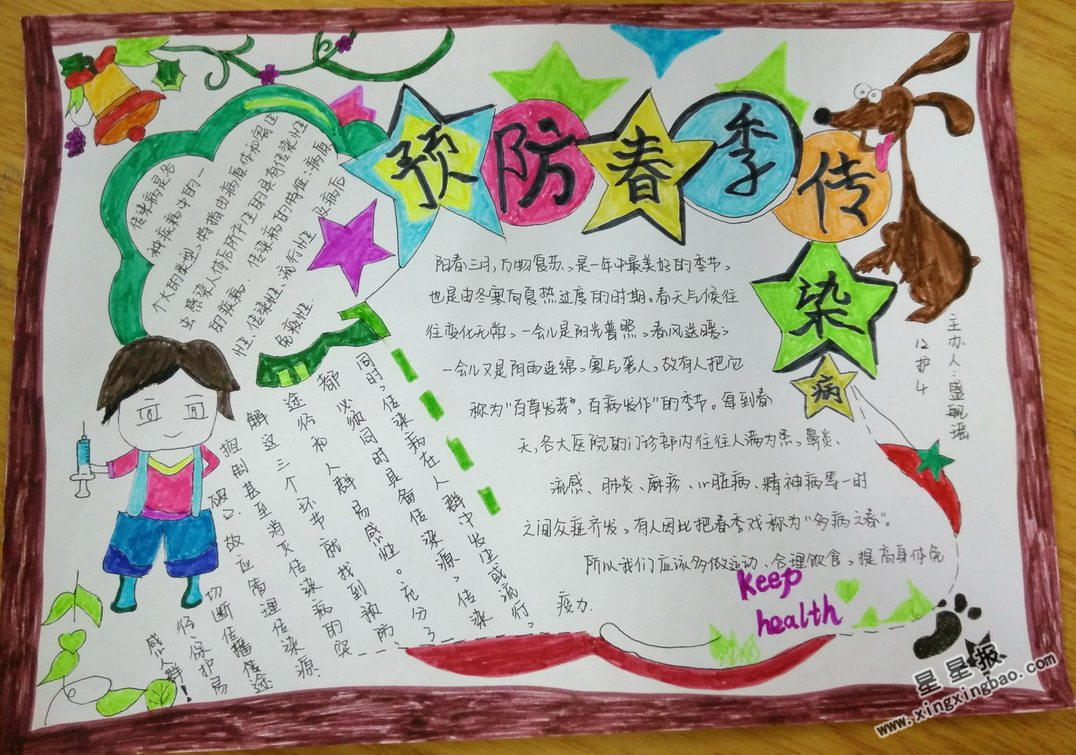 预防春季传染病
传染病是各
种疾病中的一
个大的类型,特指由病原体和寄生
虫感染人体后所产生的具有传染性
的疾病.传染病的特征:病原
性、传染性、流行性及病后
免疫性.
阳春三月,万物复苏,是一年中最美好的季节,
也是由冬寒向夏热过度的时期。春天气候往
往变化无常,一会儿是阳光普照,春风送暖;
一会儿又是阴雨连绵,寒气袭人,故有人把它
称为“百草发芽”,百病发作”的季节。每到春
天,各大医院的门诊部内往往人满为患,鼻炎、
流感、肺炎、麻疹、心脏病、精神病等一时
之间众症齐发,有人因此把春季戏称为“多病之春”。
所以我们应该多做运动、合理饮食,提高身体免
疫力.
同时,传染病在人群中发生或流行,
都必须同时具备传染源,传染
途径和人群易感性。充分了
解这三个环节就找到预防
控制甚至消灭传染病的突
破口.故应管理传染源.
切断传播途
径,保护易
感人群!
主办人:盛珮瑶
12护4
keep
health
星星报
www.xingxingbao.com